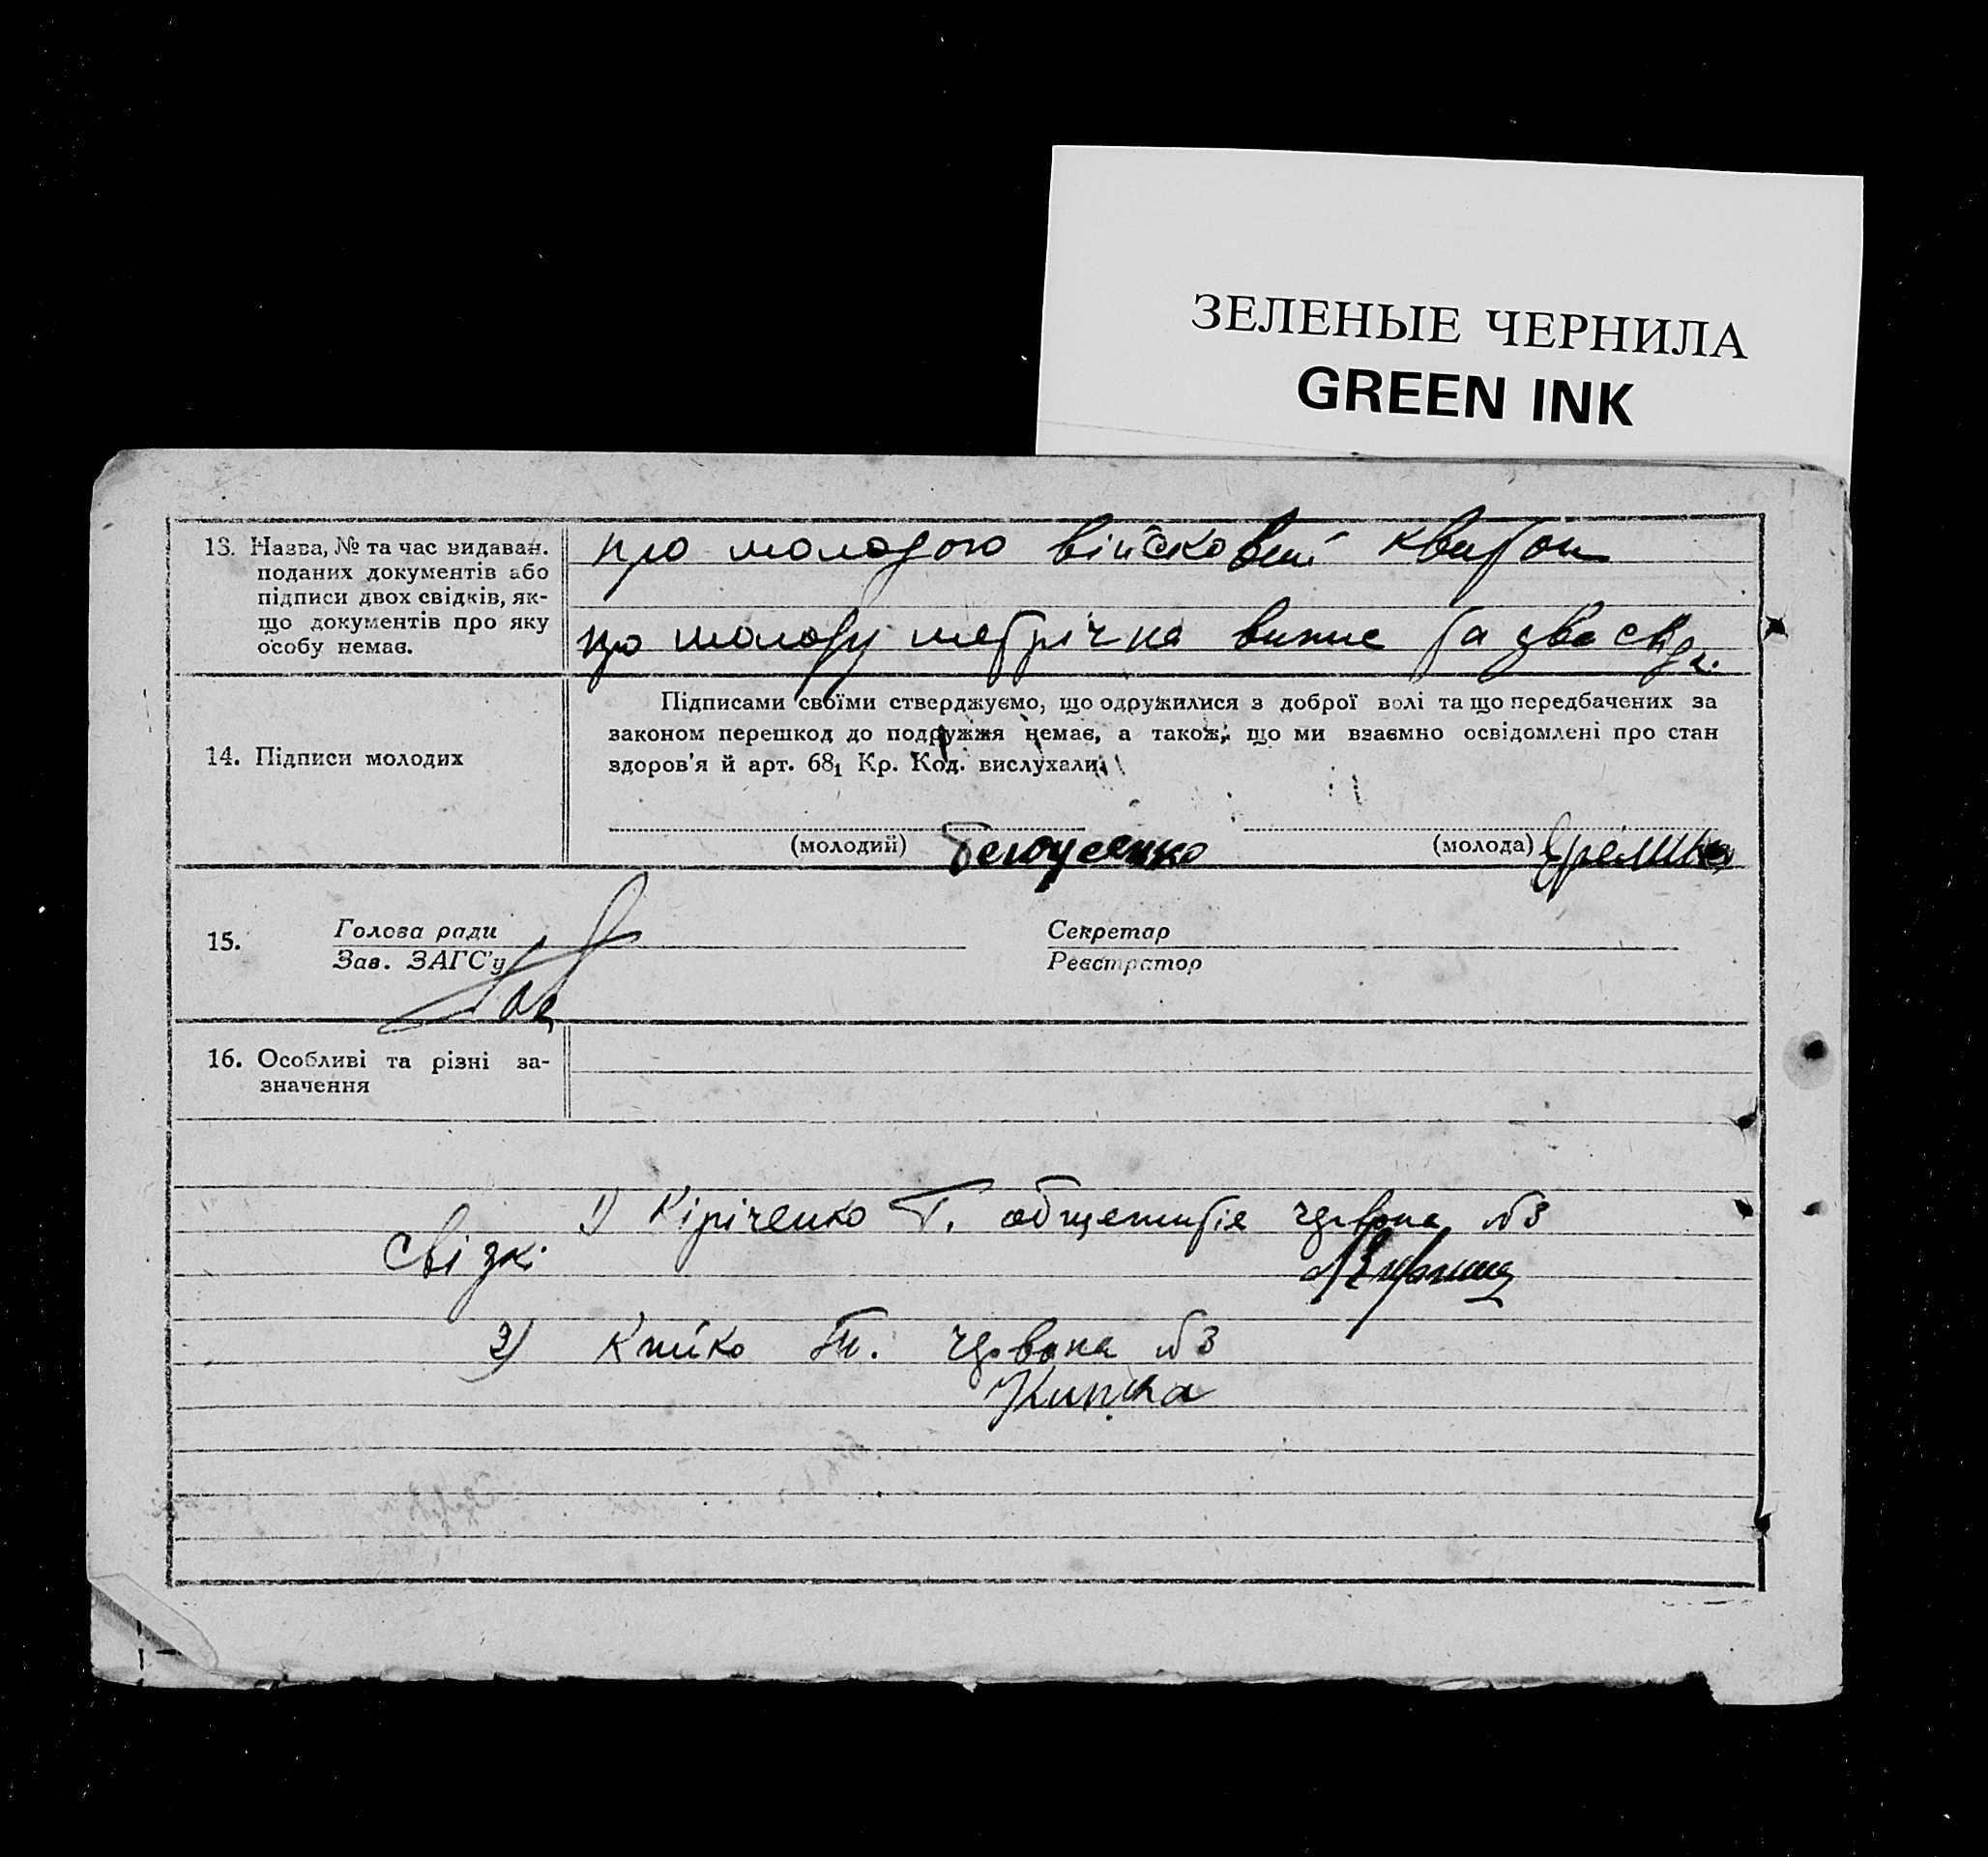 ЗЕЛЕНЫЕ ЧЕРНИЛА
GREEN INK
13. Назва, № та час видаван.
поданих документів або
підписи двох свідків, як-
що документів про яку
особу немає.
про молодого війсковий квиток
про молоду метрічна випис та два свідк.
14. Підписи молодих
Підписами своїми стверджуємо, що одружилися з доброї волі та що передбачених за
законом перешкод до подружжя немає, а також, що ми взаємно освідомлені про стан
здоров'я й арт. 68₁ Кр. Код. вислухали
(молодий)
(молода)
15.
Голова ради
Зав. ЗАГС'у
Секретар
Реєстратор
16. Особливі та різні за-
значення
1) Кіріченко Т. общетитіе червона №3
Свідкі
2) Кпико червона №3